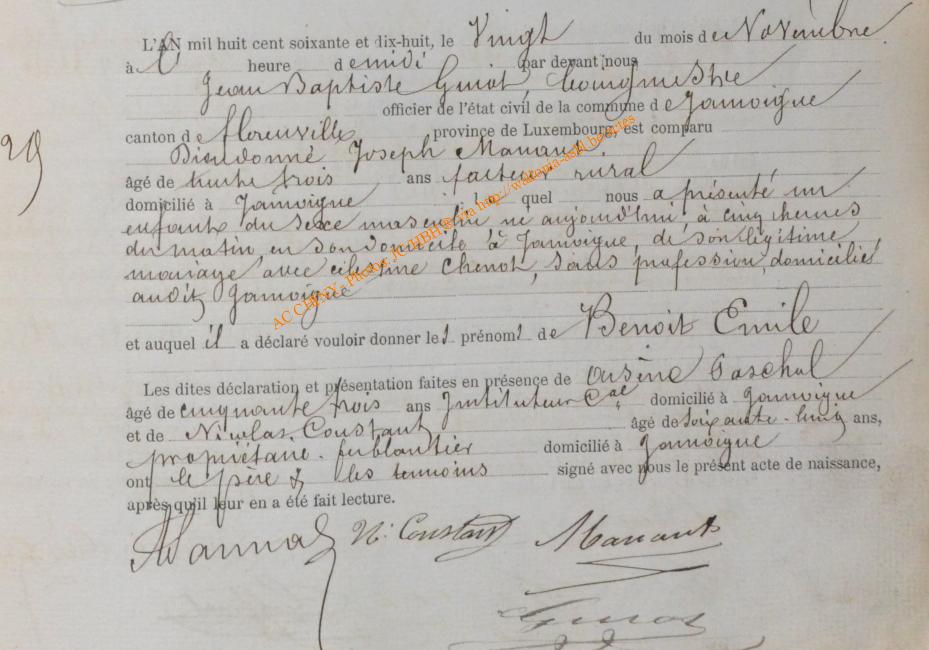 L'AN mil huit cent soixante et dix-huit, le Vingt du mois de Novembre
à heure de midi par devant nous
Jean Baptiste Guiot, bourgmestre
officier de l'état civil de la commune de Jamoigne
canton de florenville province de Luxembourg, est comparu
29
Dieudonné Joseph Manaux
âgé de trente trois ans facteur rural
domicilié à Jamoigne lequel nous a présenté un
enfant du sexe masculin né aujourd'hui à cinq heures
du matin en son domicile à Jamoigne, de son légitime
mariage avec célestine Chenot, sans profession, domiciliés
audit Jamoigne
et auquel il a déclaré vouloir donner les prénoms de Benoit Emile
Les dites déclaration et présentation faites en présence de Paschal
âgé de cinquante trois ans Instituteur Cal domicilié à Jamoigne
et de Nicolas Constant âgé de soixante-cinq ans,
propriétaire domicilié à Jamoigne
ont le père & les temoins signé avec nous le présent acte de naissance,
après qu'il leur en a été fait lecture.
N. Constant Manaux
AC CHINY - Photos JC HBH @ via http://wallonia-asbl.be/actes